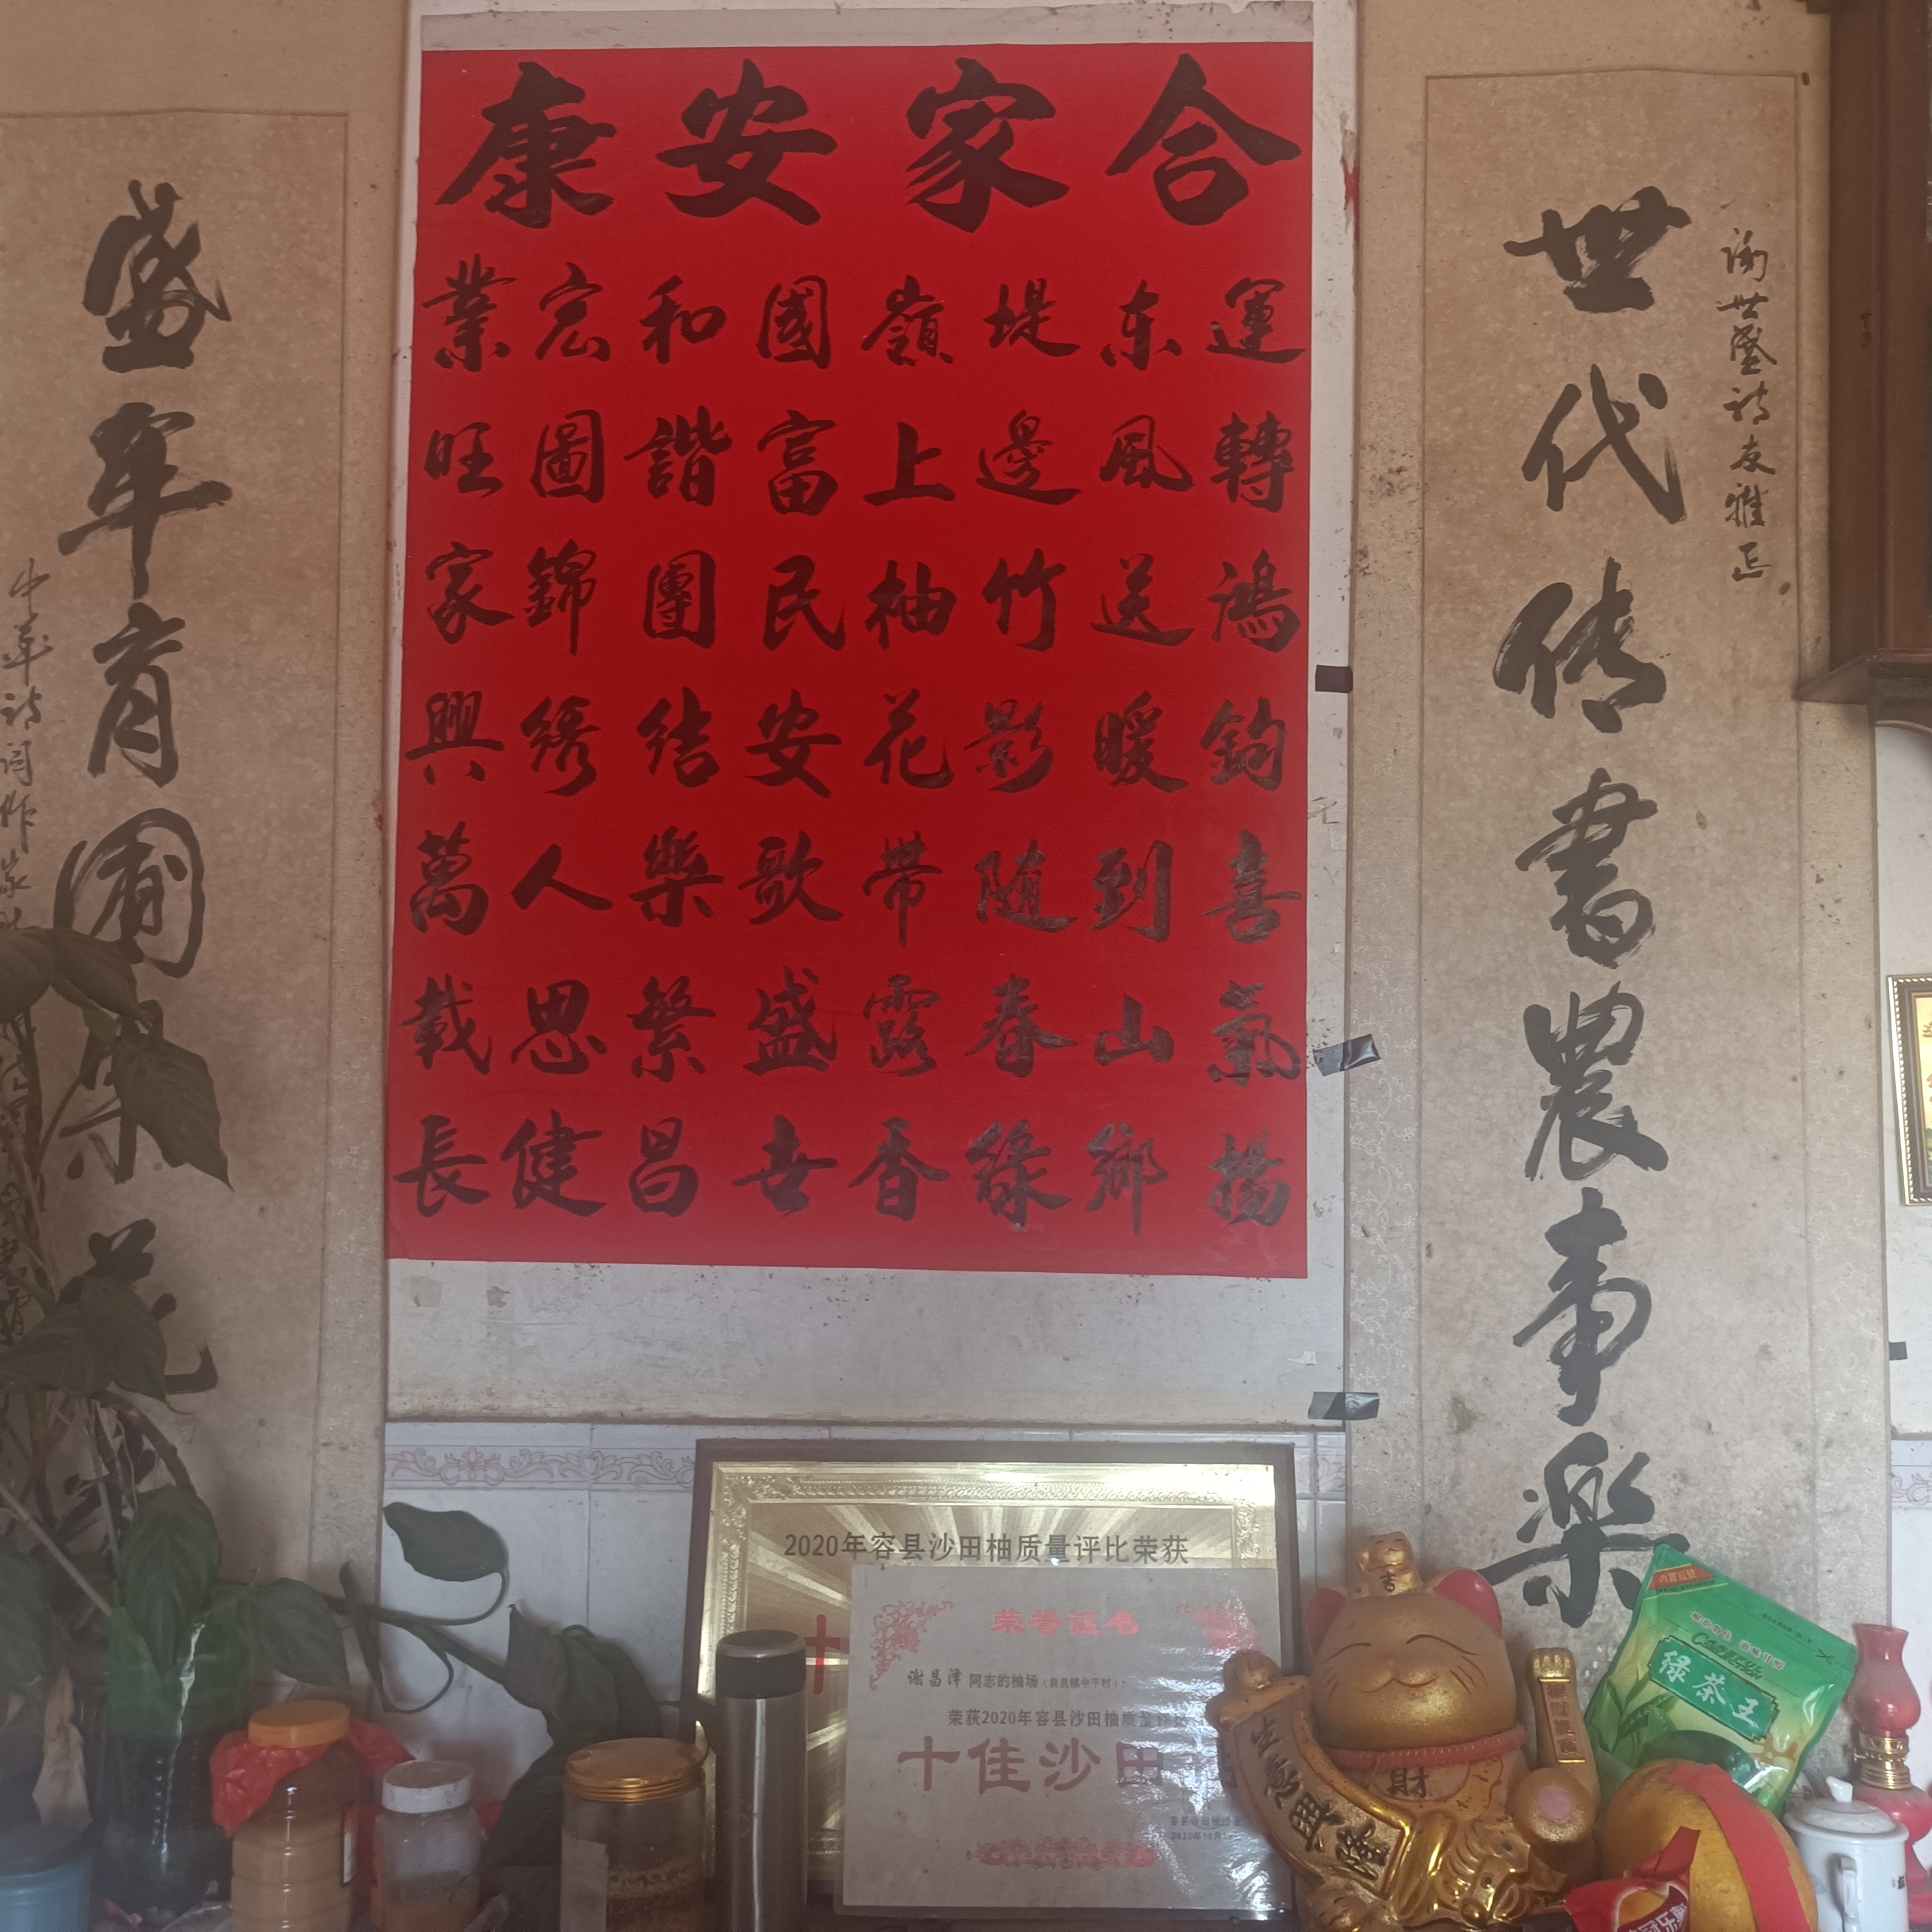 合家安康
運轉鴻鈞喜氣揚
东風送暖到山鄉
堤邊竹影随春綠
嶺上柚花帶露香
國富民安歌盛世
和諧團结樂繁昌
宏圖錦绣人思健
業旺家興萬載長
世代传書農事樂
詩友雅正
盛年育圃
2020年容县沙田柚质量评比荣获
十
荣誉证书
谢昌津 同志的柚场（自良镇中平村）
荣获2020年容县沙田柚质量评比
十佳沙田
2020年10月
吉
財
生意興隆
绿茶王